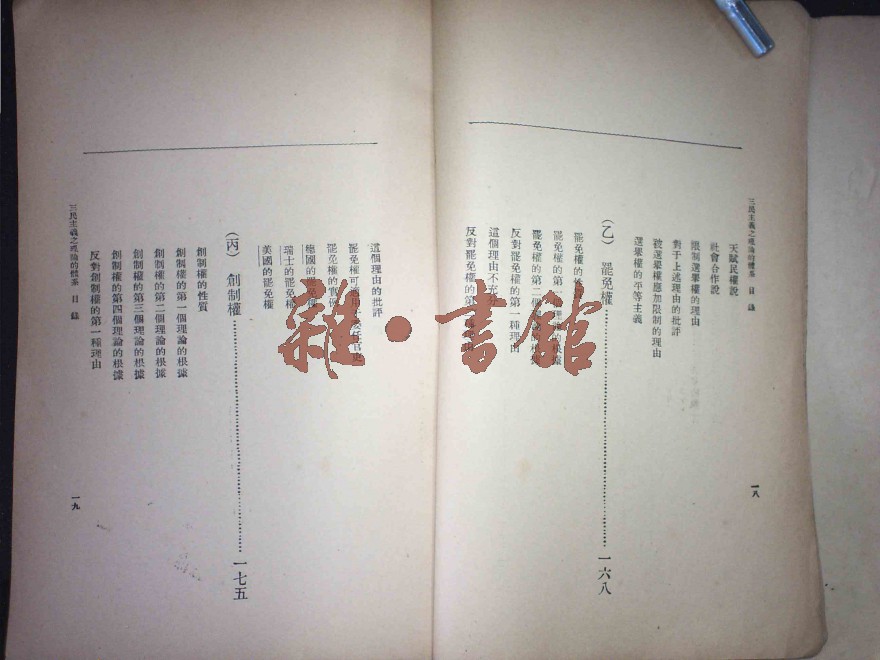 三民主義之理論的體系 目錄
天賦民權說
社會合作說
限制選舉權的理由
對于上述理由的批評
被選舉權應加限制的理由
選舉權的平等主義
(乙) 罷免權……一六八
罷免權的
罷免權的第一
罷免權的第二個
反對罷免權的第一種理由
這個理由不充
反對罷免權的第
一八
這個理由的批評
罷免權可
罷免權的實
德國的罷免權
瑞士的罷免權
美國的罷免權
(丙) 創制權……一七五
創制權的性質
創制權的第一個理論的根據
創制權的第二個理論的根據
創制權的第三個理論的根據
創制權的第四個理論的根據
反對創制權的第一種理由
三民主義之理論的體系 目錄
一九
雜·書館